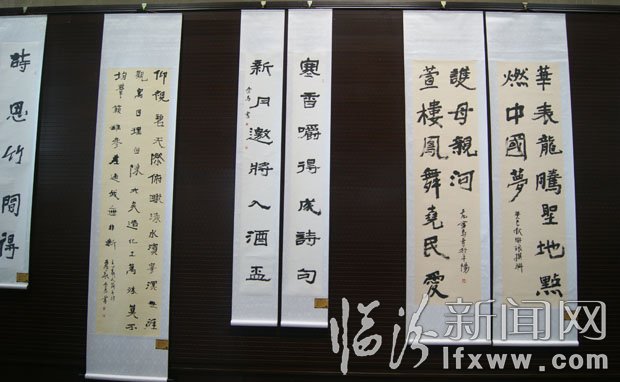 華表龍騰聖地點
燃中國夢
萱樓鳳舞堯民愛
護母親河
寒香嚼得成詩句
新月邀將入酒盃
仰視碧天際俯瞰淥水濱寥闃無涯
觀寓目理自陳大矣造化工萬殊莫不
均群籟雖參差適我無非新
詩思竹間得
临汾新闻网
lfxww.com